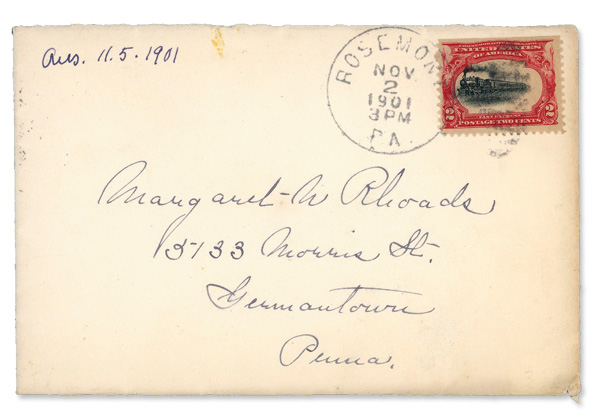 Ans. 11.5.1901
ROSEMONT
NOV
2
1901
3 PM
PA.
UNITED STATES
OF AMERICA
2 POSTAGE TWO CENTS 2
Margaret W Rhoads
5133 Morris St.
Germantown
Penna.